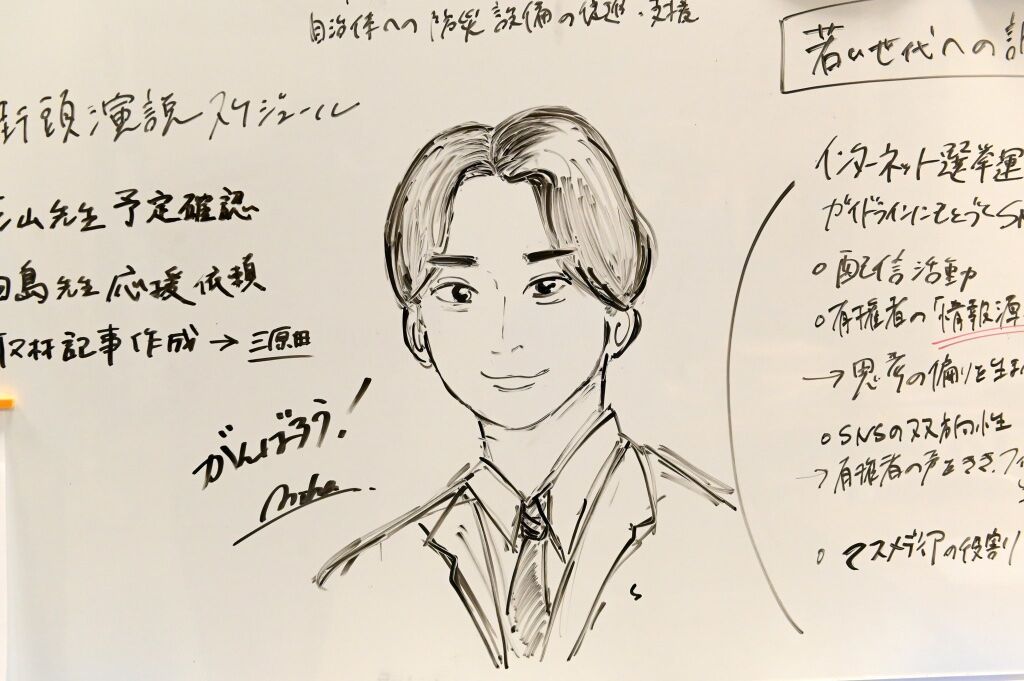 自治体への防災設備の促進・支援
街頭演説スケジュール
山先生 予定確認
田島先生 応援依頼
取材記事作成 → 三原田
がんばろう!
若い世代への
インターネット選挙運
ガイドラインにもとづくSN
○ 配信活動
○ 有権者の「情報源
→ 思考の偏りを生
○ SNSの双方向性
→ 有権者の声をきき、フィ
○ マスメディアの役割